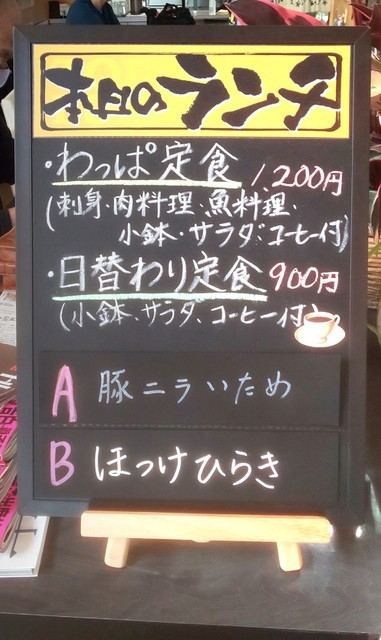 本日のランチ
・わっぱ定食 1,200円
(刺身・肉料理・魚料理・
小鉢・サラダ、コーヒー付)
・日替わり定食 900円
(小鉢、サラダ、コーヒー付)
A 豚ニラいため
B ほっけひらき